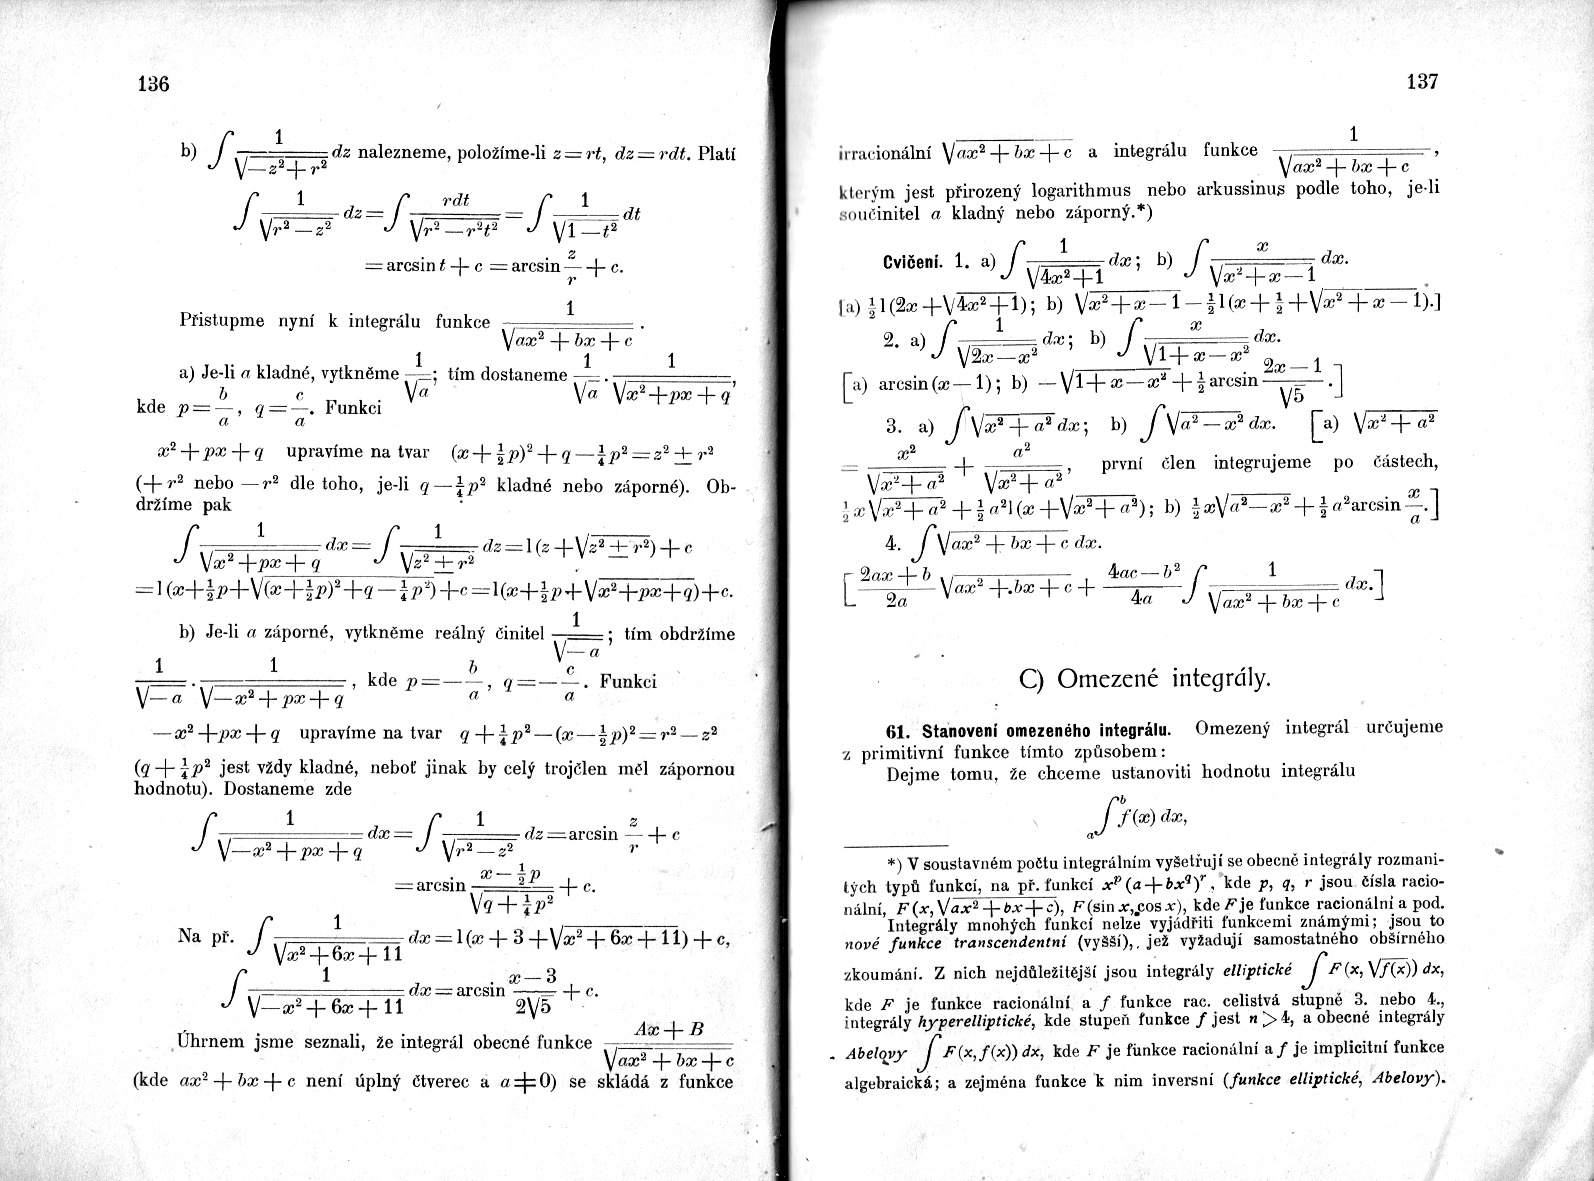 136
b) ∫ 1/√(—z² + r²) dz nalezneme, položíme-li z = rt, dz = rdt. Platí
∫ 1/√(r² — z²) dz = ∫ rdt/√(r² — r²t²) = ∫ 1/√(1 — t²) dt
= arcsin t + c = arcsin z/r + c.
Přistupme nyní k integrálu funkce 1/√(ax² + bx + c) .
a) Je-li a kladné, vytkněme 1/√a; tím dostaneme 1/√a . 1/√(x² + px + q),
kde p = b/a, q = c/a. Funkci
x² + px + q upravíme na tvar (x + ½p)² + q — ¼p² = z² ± r²
(+ r² nebo — r² dle toho, je-li q — ¼p² kladné nebo záporné). Ob-
držíme pak
∫ 1/√(x² + px + q) dx = ∫ 1/√(z² ± r²) dz = l (z + √(z² ± r²)) + c
= l (x + ½p + √((x + ½p)² + q — ¼p²)) + c = l(x + ½p + √(x² + px + q)) + c.
b) Je-li a záporné, vytkněme reálný činitel 1/√(— a) ; tím obdržíme
1/√(— a) . 1/√(—x² + px + q) , kde p = — b/a , q = — c/a . Funkci
— x² + px + q upravíme na tvar q + ¼p² — (x — ½p)² = r² — z²
(q + ¼p² jest vždy kladné, neboť jinak by celý trojčlen měl zápornou
hodnotu). Dostaneme zde
∫ 1/√(—x² + px + q) dx = ∫ 1/√(r² — z²) dz = arcsin z/r + c
= arcsin (x — ½p)/√(q + ¼p²) + c.
Na př. ∫ 1/√(x² + 6x + 11) dx = l (x + 3 + √(x² + 6x + 11) + c,
∫ 1/√(—x² + 6x + 11) dx = arcsin (x — 3)/(2√5) + c.
Úhrnem jsme seznali, že integrál obecné funkce (Ax + B)/√(ax² + bx + c)
(kde ax² + bx + c není úplný čtverec a a ≠ 0) se skládá z funkce
137
irracionální √(ax² + bx + c) a integrálu funkce 1/√(ax² + bx + c) ,
kterým jest přirozený logarithmus nebo arkussinus podle toho, je-li
součinitel a kladný nebo záporný.*)
Cvičení. 1. a) ∫ 1/√(4x² + 1) dx; b) ∫ x/√(x² + x — 1) dx.
[a) ½ l (2x + √(4x² + 1); b) √(x² + x — 1) — ½ l (x + ½ + √(x² + x — 1).]
2. a) ∫ 1/√(2x — x²) dx; b) ∫ x/√(1 + x — x²) dx.
[a) arcsin (x — 1); b) — √(1 + x — x²) + ½ arcsin (2x — 1)/√5 .]
3. a) ∫ √(x² + a²) dx; b) ∫ √(a² — x²) dx. [a) √(x² + a²)
= x²/√(x² + a²) + a²/√(x² + a²) , první člen integrujeme po částech,
½ x √(x² + a²) + ½ a² l (x + √(x² + a²); b) ½ x√(a² — x²) + ½ a² arcsin x/a .]
4. ∫ √(ax² + bx + c) dx.
[(2ax + b)/2a √(ax² + bx + c) + (4ac — b²)/4a ∫ 1/√(ax² + bx + c) dx.]
C) Omezené integrály.
61. Stanovení omezeného integrálu. Omezený integrál určujeme
z primitivní funkce tímto způsobem:
Dejme tomu, že chceme ustanoviti hodnotu integrálu
ₐ∫ᵇ f (x) dx,
*) V soustavném počtu integrálním vyšetřují se obecně integrály rozmani-
tých typů funkcí, na př. funkcí xᵖ (a + bx^q)ʳ, kde p, q, r jsou čísla racio-
nální, F (x, √(ax² + bx + c), F (sin x, cos x), kde F je funkce racionální a pod.
Integrály mnohých funkcí nelze vyjádřiti funkcemi známými; jsou to
nové funkce transcendentní (vyšší), jež vyžadují samostatného obšírného
zkoumání. Z nich nejdůležitější jsou integrály elliptické ∫ F (x, √f(x)) dx,
kde F je funkce racionální a f funkce rac. celistvá stupně 3. nebo 4.,
integrály hyperelliptické, kde stupeň funkce f jest n > 4, a obecné integrály
Abelovy ∫ F (x, f (x)) dx, kde F je funkce racionální a f je implicitní funkce
algebraická; a zejména funkce k nim inversní (funkce elliptické, Abelovy).